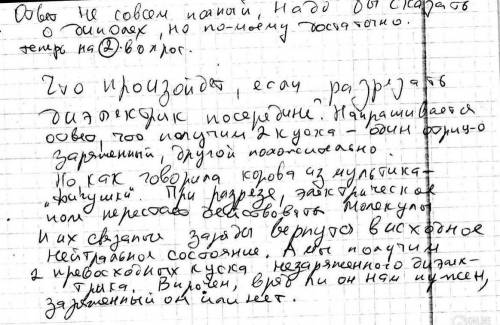 Ответ не совсем полный, надо бы сказать
о диполях, но по-моему достаточно.
теперь на 2 вопрос.
Что произойдет, если разрезать
диэлектрик посередине? Напрашивается
ответ, что получим 2 куска – один отриц-о
заряженный, другой положительно.
Но как говорила корова из мультика –
"фигушки". При разрезе, электрическое
поле перестает действовать. Молекулы
и их связанные заряды вернутся в исходное
нейтральное состояние. А мы получим
2 превосходных куска незаряженного диэлек-
трика. Впрочем, вряд ли он нам нужен,
заряженный он или нет.